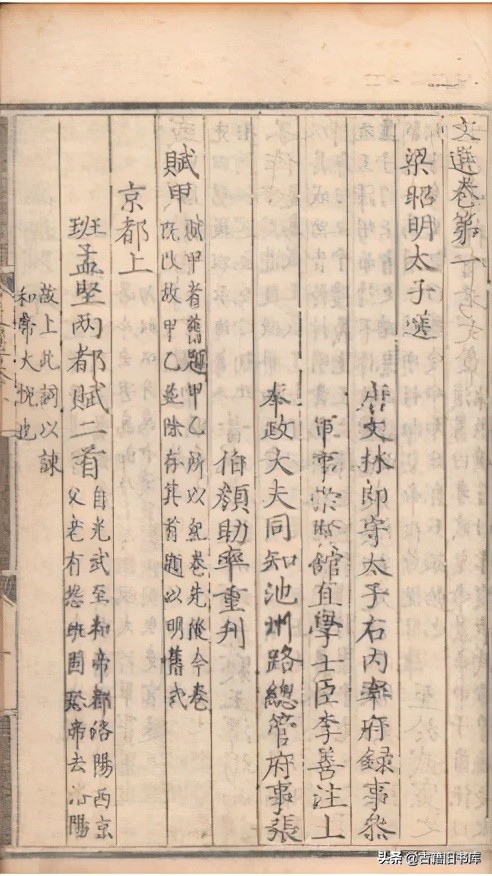 文選卷第
梁昭明太子選
唐文林郎守太子右内率府録事叅
軍事崇賢館直學士臣李善注上
奉政大夫同知池州路總管府事張
伯顔助率重刋
賦甲
賦甲者舊題甲乙所以紀卷先後今卷
既改故甲乙並除存其首題以明舊式
京都上
班孟堅两都賦二首
自光武至和帝都洛陽西京
父老有怨班固恐帝去洛陽
故上此詞以諫
和帝大恱也
头条 @古籍旧书库